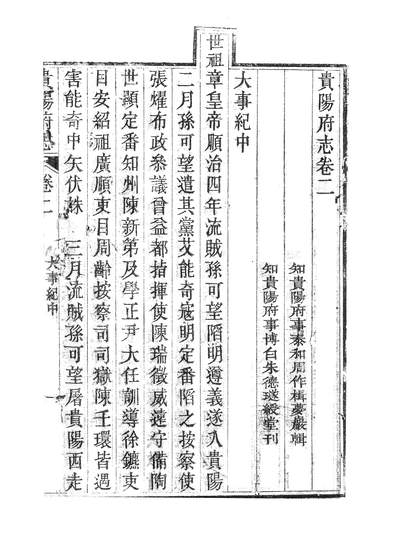 貴陽府志卷二
知貴陽府事泰和周作楫夢巖輯
知貴陽府事博白朱德璲綬堂刊
大事紀中
世祖章皇帝順治四年流賊孫可望陷明遵義遂入貴陽
二月孫可望遣其黨艾能奇寇明定番陷之按察使
張燿布政參議曾益都指揮使陳瑞徵威遠守備陶
世顯定番知州陳新第及學正尹大任訓導徐鑣吏
目安紹祖廣順吏目周齡按察司司獄陳王環皆遇
害能奇中矢伏誅 三月流賊孫可望屠貴陽西走
貴陽府志 卷二 大事紀中